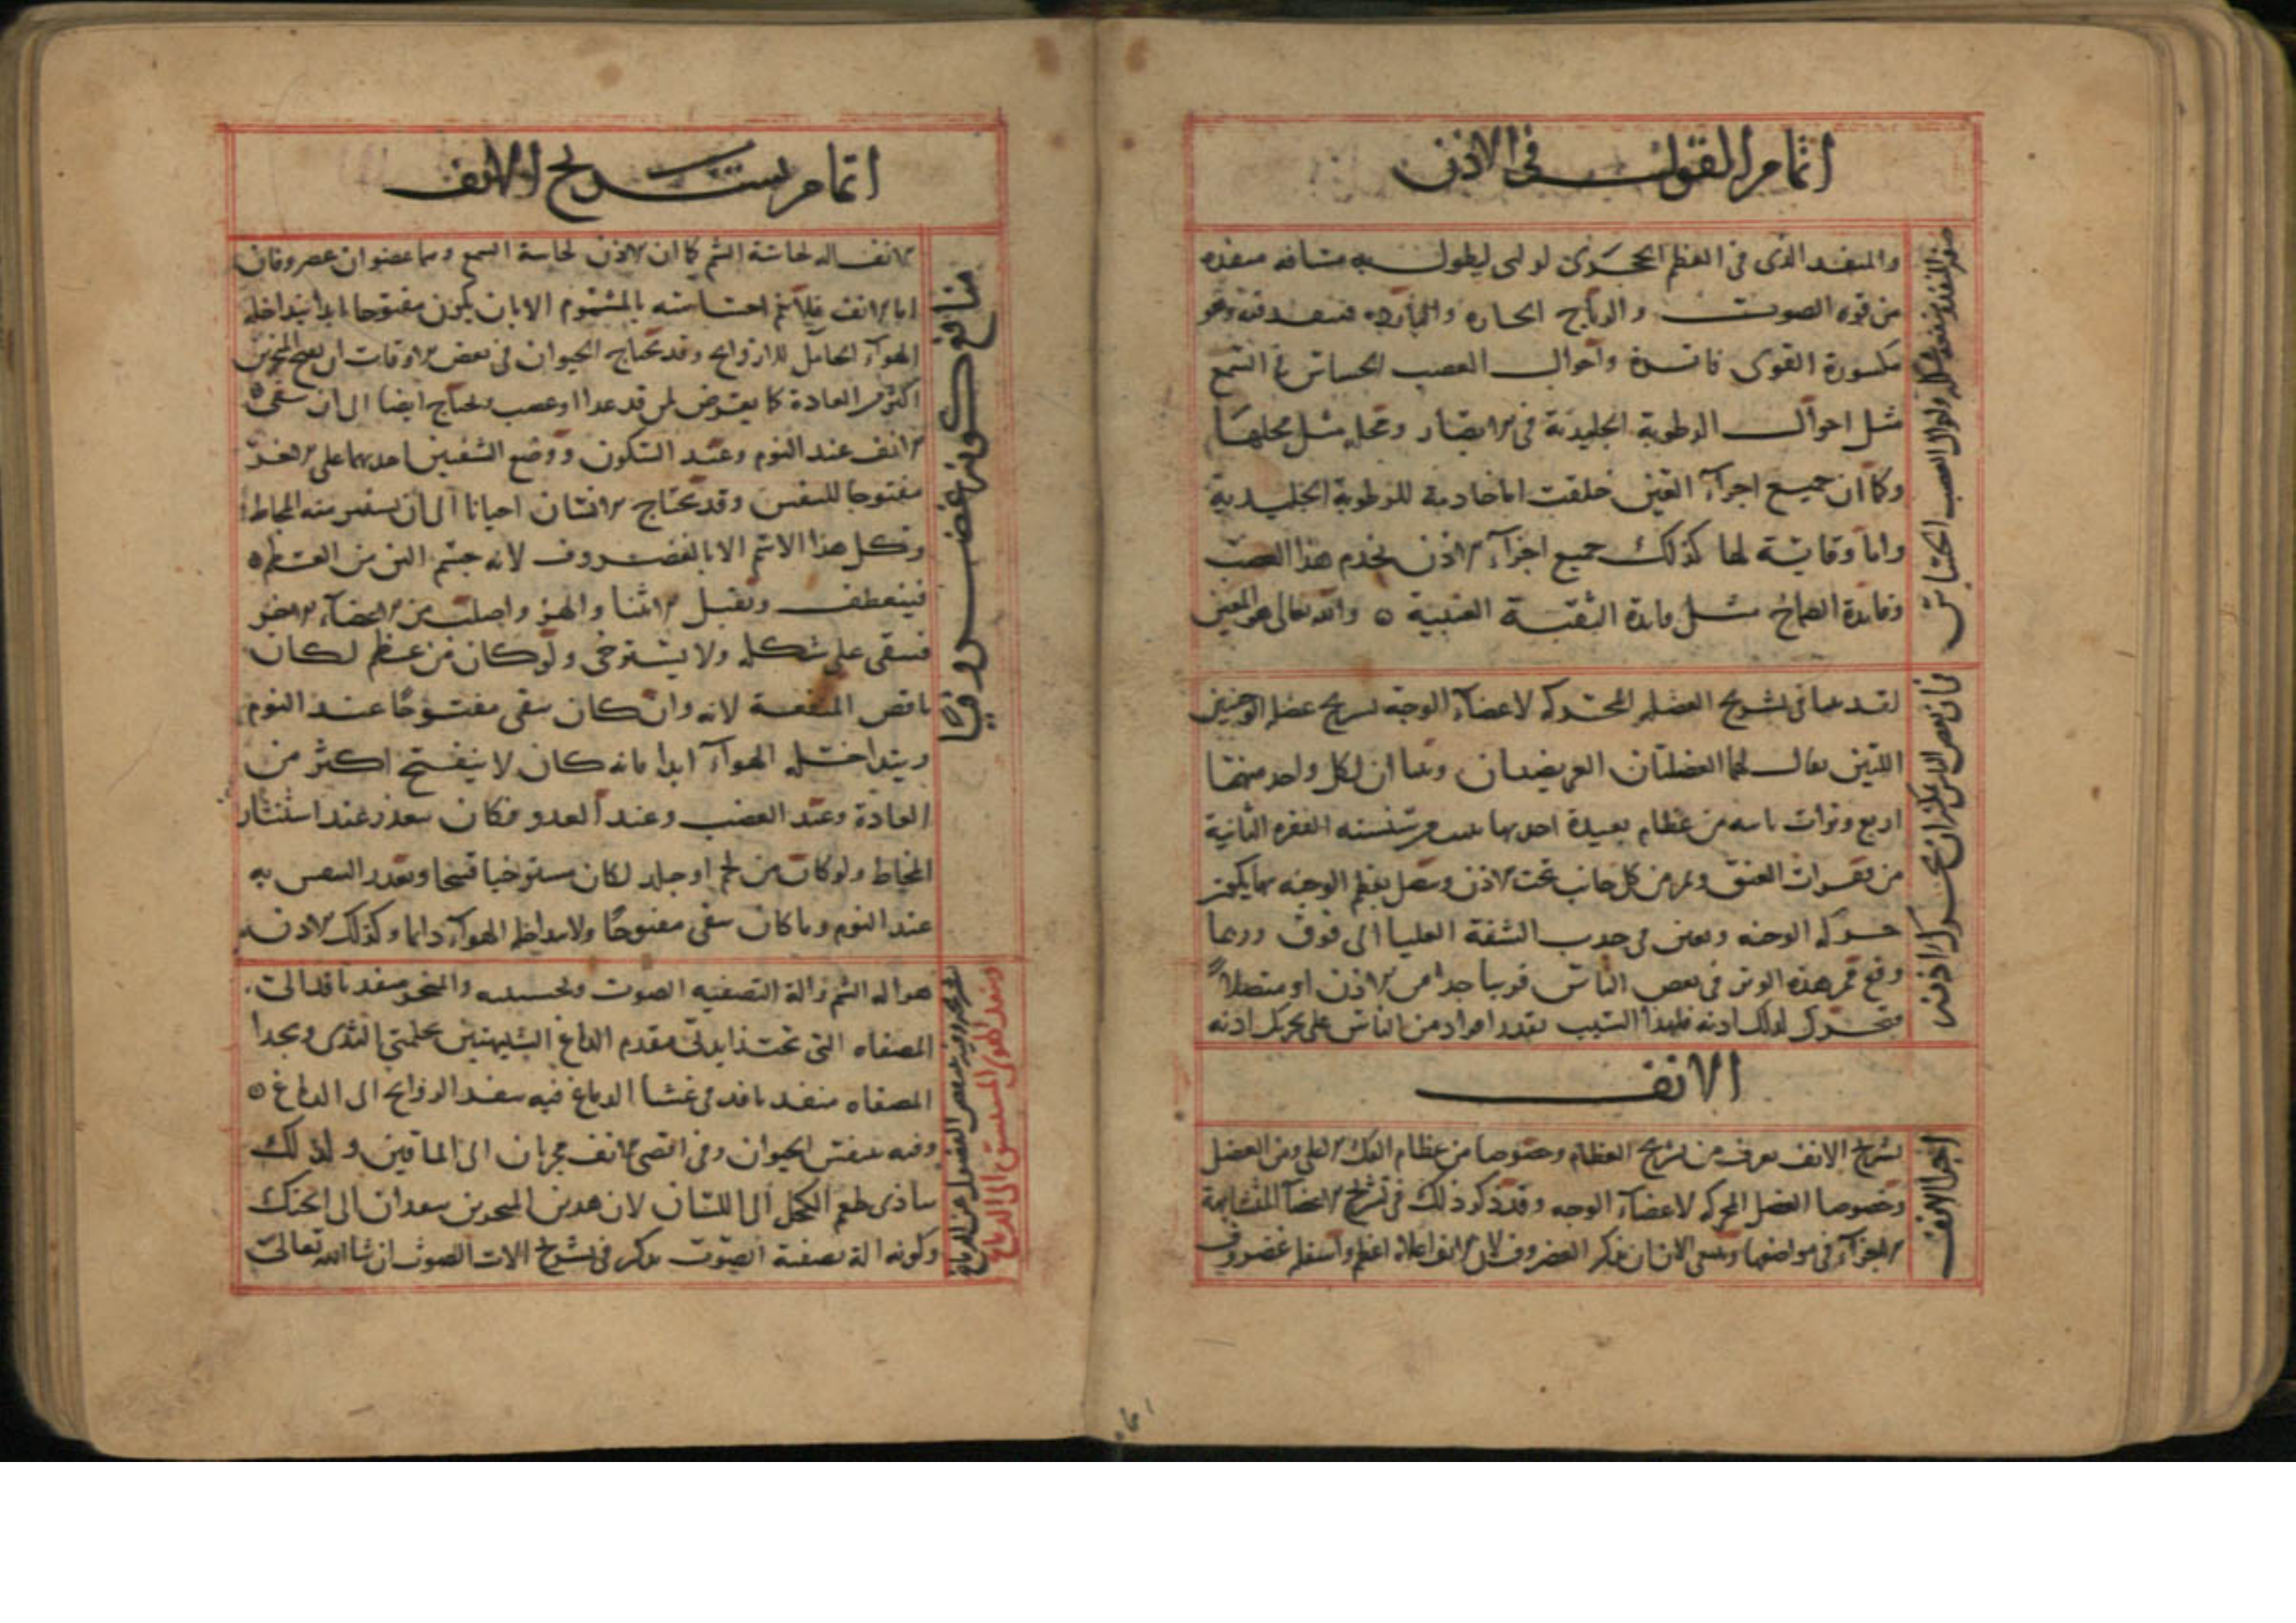 اتمام القول في الاذن
والمنفد الذى فى العظم الحجرى لولبى ليطول به مسافه منفذه
من قوه الصوت والرياح الحاره والبارده فتنفد فيه وهو
مكسورة القوى فاترة واحوال العصب الحساس فى السمع
مثل احوال الرطوبة الجليدية فى الابصار ومحله مثل محلها
وكما ان جميع اجزآء العين خلقت اما خادمة للرطوبة الجليدية
واما وقاية لها كذلك جميع اجزآء الاذن يخدم هذا العصب
وفايدة الصماخ مثل فايدة الثقبة العنبية والله تعالى هو المعين
لقد بينا فى تشريح العضل المحركه لاعضآء الوجه تشريح عضله الوجنتين
اللتين يقال لهما العضلتان العريضتان وبينا ان لكل واحد منهما
اربع وترات من عظام بعيدة احدبها سنسنه الفقره الثانية
من فقرات العنق وتمر من كل جانب تحت الاذن وتتصل بعظم الوجنه بها يكون
حركه الوجنه وتعين فى جدب الشفة العليا الى فوق وربما
وقع ممر هذه الوتر فى بعض الناس قريبا جدا من الاذن او متصلا
فتحرك لذلك ادنه فلهذا السبب يقدر افراد من الناس على تحريك ادنه
الانف
تشريح الانف يعرف من تشريح العظام وخصوصا من عظام الفك الاعلى ومن العضل
وخصوصا العضل المحركه لاعضآء الوجه وقد ذكر ذلك فى تشريح الاعضآ المتشابهة
الاجزآء فى مواضعها وبقى الان ان نذكر الغضروف لان الانف اعلاه اعظم واسفله غضروف
اجزا الانف
اتمام تشريح الانف
الانف اله لحاسة الشم كما ان الاذن لحاسة السمع وهما عضوان غضروفان
اما الانف فلا يتم احساسه بالمشموم الا بان يكون مفتوحا ابدا يتداخله
الهوآء الحامل للاروايح وقد يحتاج الحيوان فى بعض الاوقات ان يفتح المنخرين
اكثر من العادة كما يعرض لمن قد عدا او غضب ويحتاج ايضا الى ان يبقى
الانف عند النوم وعند السكون ووضع الشفتين احديهما على الاخر
مفتوحا للتنفس وقد يحتاج الانسان احيانا الى ان يستنثر منه المخاط
وكل هذا لا يتم الا بالغضروف لانه جسم الين من العظم
فينعطف ويقبل الانثنا والهز واصلب من الاعضآء الاخر
فيبقى على شكله ولا يسترخى ولو كان من عظم لكان
ناقص المنفعة لانه وان كان يبقى مفتوحا عند النوم
ويتداخله الهوآء ابدا فانه كان لا ينفتح اكثر من
العادة وعند الغضب وعند العدو فكان يتعذر عند استنثار
المخاط ولو كان من لحم او جلد لكان مسترخيا قبيحا وتعذر التنفس به
عند النوم وما كان يبقى مفتوحا ولا يتداخله الهوآء دايما وكذلك الاذن
منافع كونه غضروفيا
هو اله الشم واله التصفيه الصوت وتحسينه والمنخر منفد نافد الى
المصفاه التى تحت زايدتى مقدم الدماغ الشبيهتين بحلمتى الثدى وبحذا
المصفاه منفد نافد فى غشا الدماغ فيه ينفد الروايح الى الدماغ
وفيه يتنفس الحيوان وفى اقصى الانف مجريان الى الماقين ولذلك
يتاذى طعم الكحل الى اللسان لان هدين المجريين ينفدان الى الحنك
وكونه اله تصفية الصوت يذكر فى تشريح الات الصوت ان شا الله تعالى